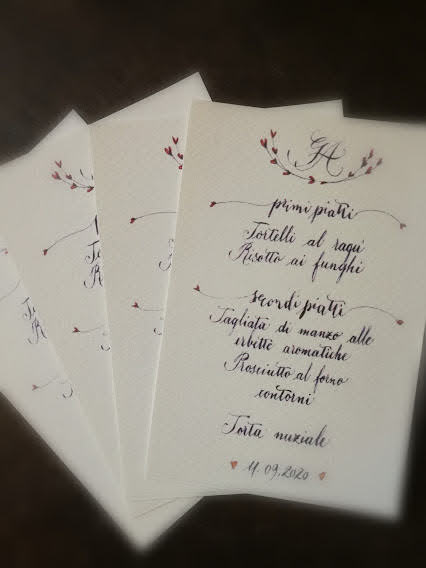 GA
primi piatti
Tortelli al ragù
Risotto ai funghi
secondi piatti
Tagliata di manzo alle
erbette aromatiche
Prosciutto al forno
contorni
Torta nuziale
11.09.2020